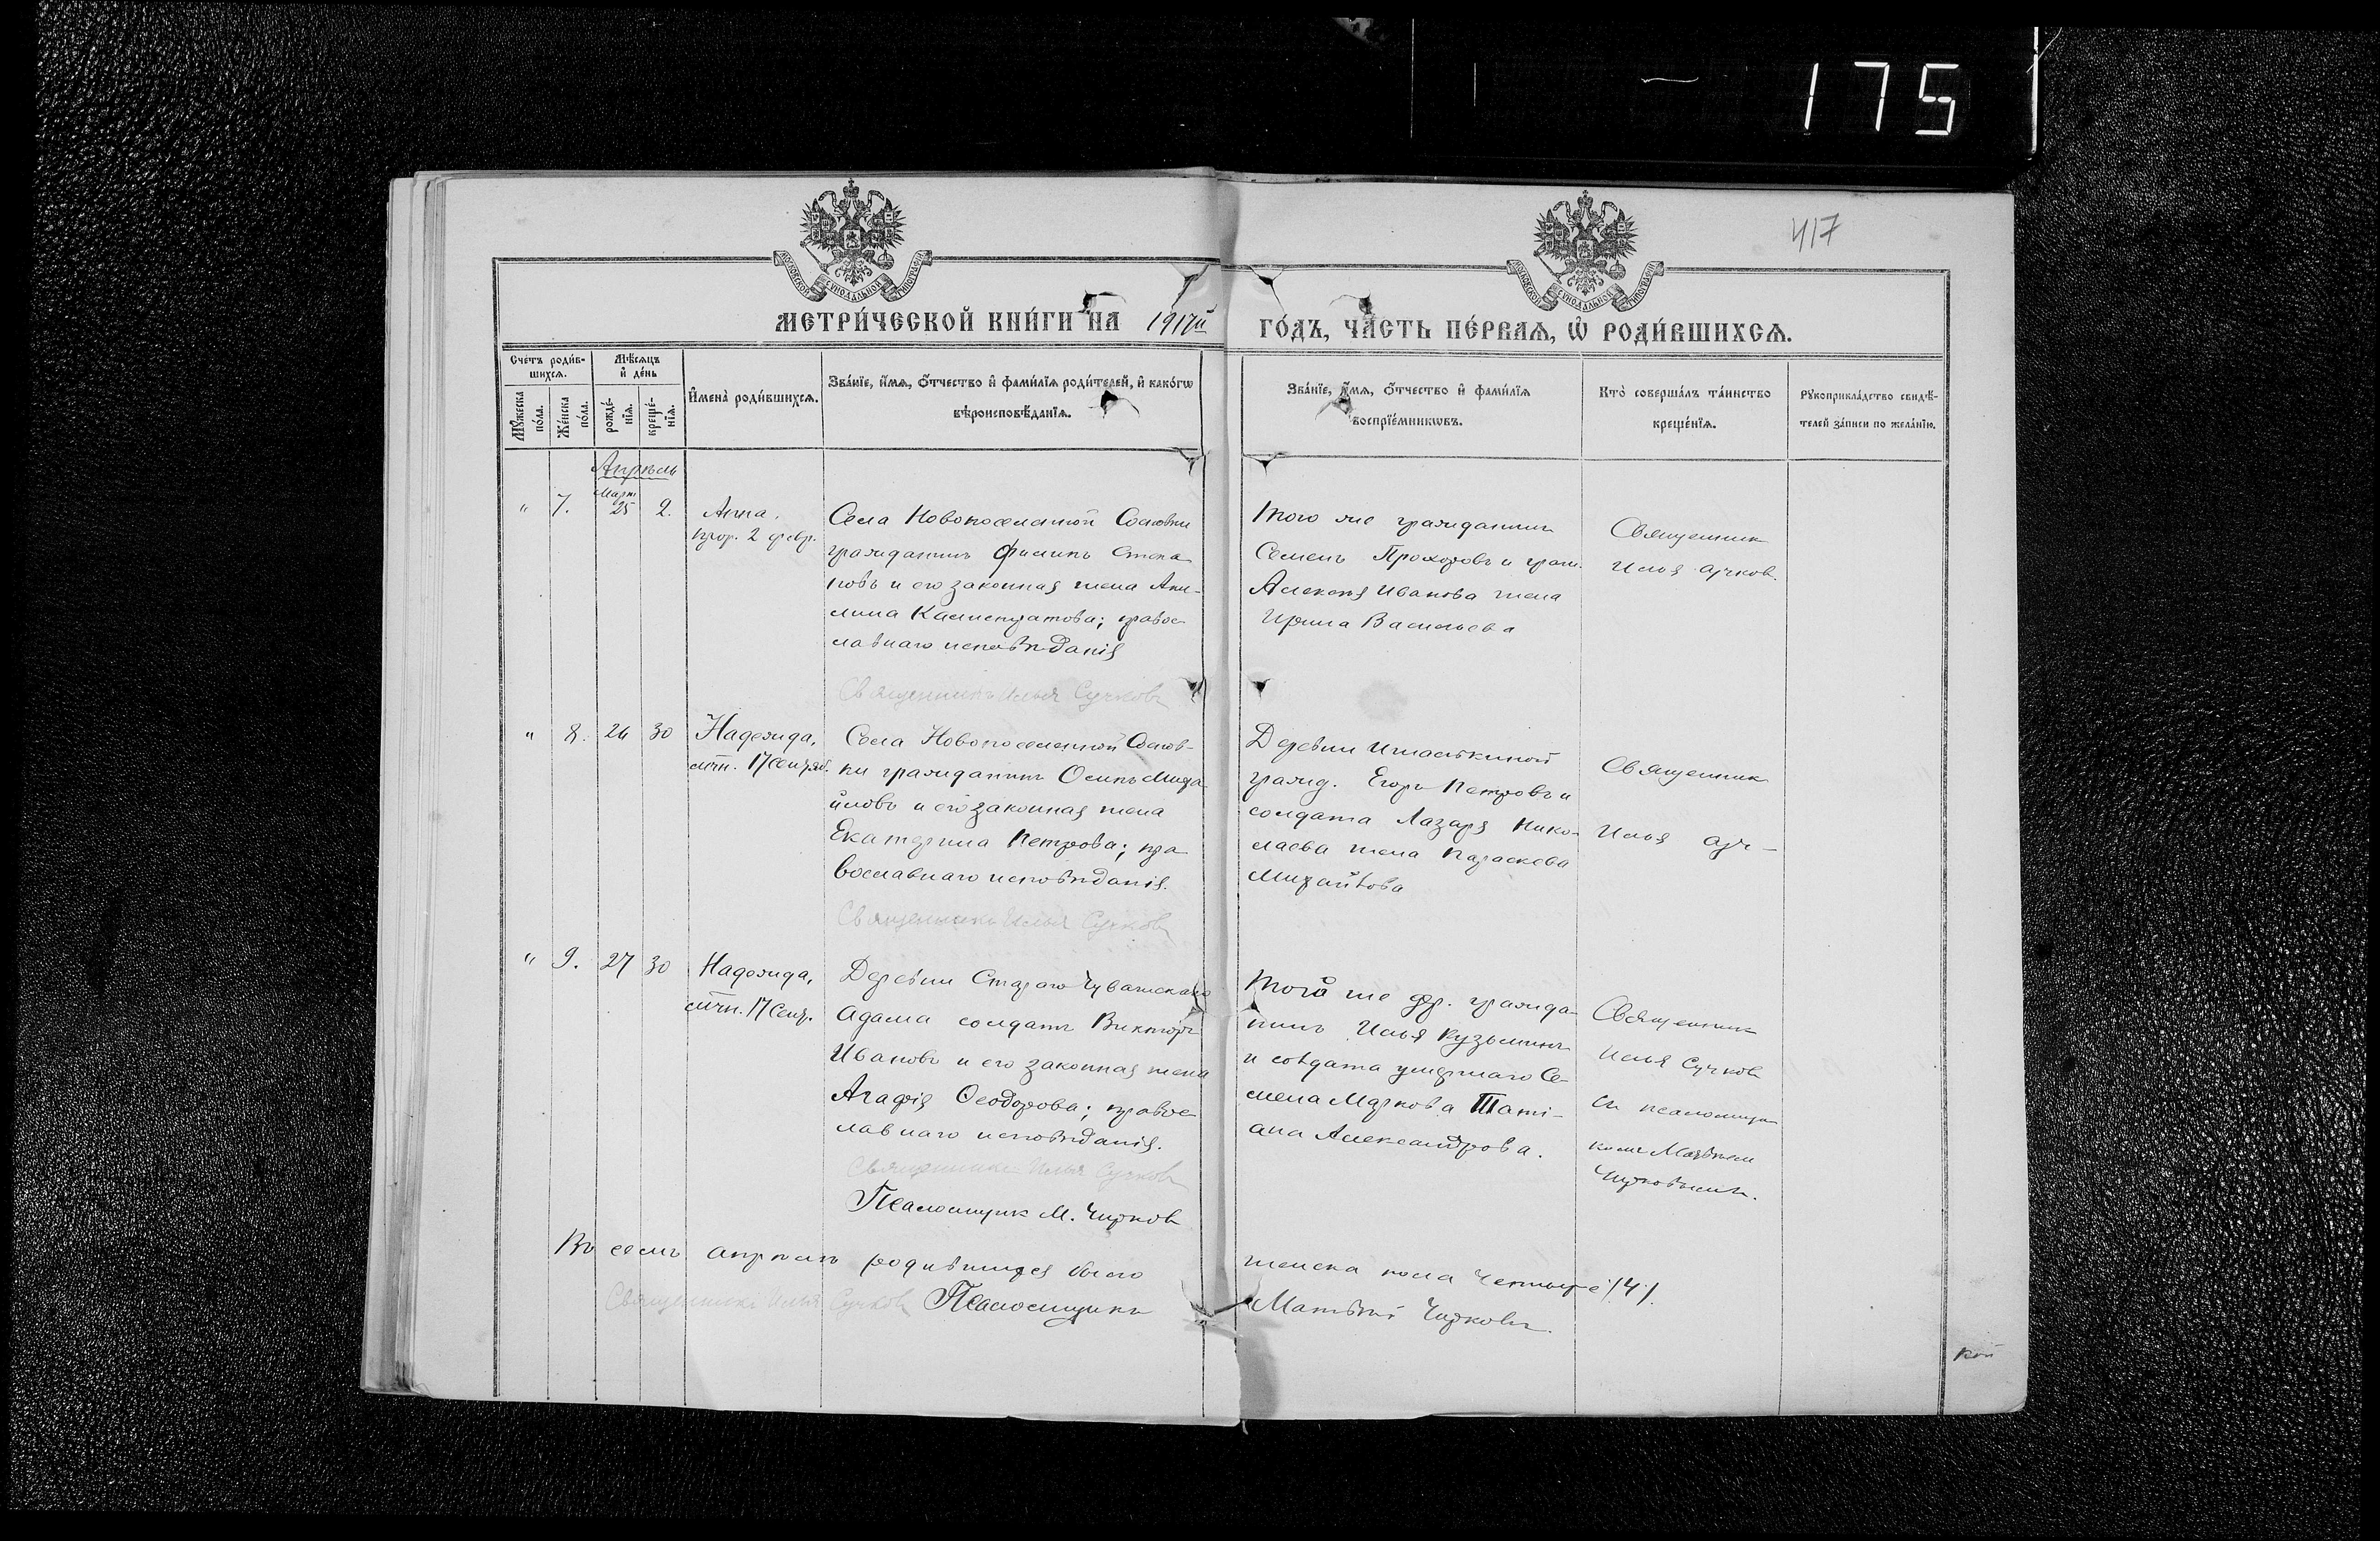 175
417
МОСКОВСКОЙ СѴНОДАЛЬНОЙ ТИПОГРАФІИ
МОСКОВСКОЙ СѴНОДАЛЬНОЙ ТИПОГРАФІИ
МЕТРИ́ЧЕСКОЙ КНИ́ГИ НА 1917й ГО́ДЪ, ЧА́СТЬ ПЕ́РВАѦ, Ѡ҆ РОДИ́ВШИХСѦ.
Сче́тъ роди́в-
шихсѧ.
Мꙋ́жеска
по́ла.
Же́нска
по́ла.
Мѣ́сѧцъ
и҆ де́нь
рожде́-
нїѧ.
креще́-
нїѧ.
И҆мена̀ роди́вшихсѧ.
Зва́нїе, и҆́мѧ, о҆́тчество и҆ фами́лїѧ роди́телей, и҆ како́гѡ
вѣроисповѣ́данїѧ.
Зва́нїе, и҆́мѧ, о҆́тчество и҆ фами́лїѧ
воспрїе́мникѡвъ.
Кто̀ соверша́лъ та́инство
креще́нїѧ.
Рꙋкоприкла́дство свидѣ́-
телей за́писи по жела́нїю.
Апрѣль
Март
" 7. 25 2.
Анна,
прор. 2 февр.
Села Новопоселенной Сосновки
гражданинъ Филипъ Степа
новъ и его законная жена Аки-
лина Калистратова; правос
лавнаго исповѣданія
Священникъ Илья Сучковъ
Того же гражданинъ
Семенъ Прохоровъ и граж.
Алексѣя Иванова жена
Ирина Васильева
Священник
Илья Сучков.
" 8. 26 30
Надежда,
мчн. 17 Сентяб.
Села Новопоселенной Соснов-
ки гражданинъ Осипъ Миха
йловъ и его законная жена
Екатерина Петрова; пра
вославнаго исповѣданія.
Священникъ Илья Сучковъ
Деревни
гражд. Егоръ Петровъ и
солдата Лазаря Нико-
лаева жена Параскева
Михайлова
Священник
Илья Суч-
" 9. 27 30
Надежда,
мчн. 17 Сент.
Деревни Стараго Чувашскаго
Адама солдатъ Викторъ
Ивановъ и его законная жена
Агафія Ѳеодорова; правос
лавнаго исповѣданія.
Священникъ Илья Сучковъ
Псаломщик М. Чирков
Той же дер. гражда-
нинъ Илья Кузьминъ
и солдата умершаго Се-
мена Маркова Таті-
ана Александрова.
Священник
Илья Сучков
съ псаломщи
комъ Матвѣем
Чирковымъ.
Въ семъ апрѣлѣ родившихся было женска пола четыре /4/.
Священникъ Илья Сучков Псаломщикъ Матвѣй Чирковъ.